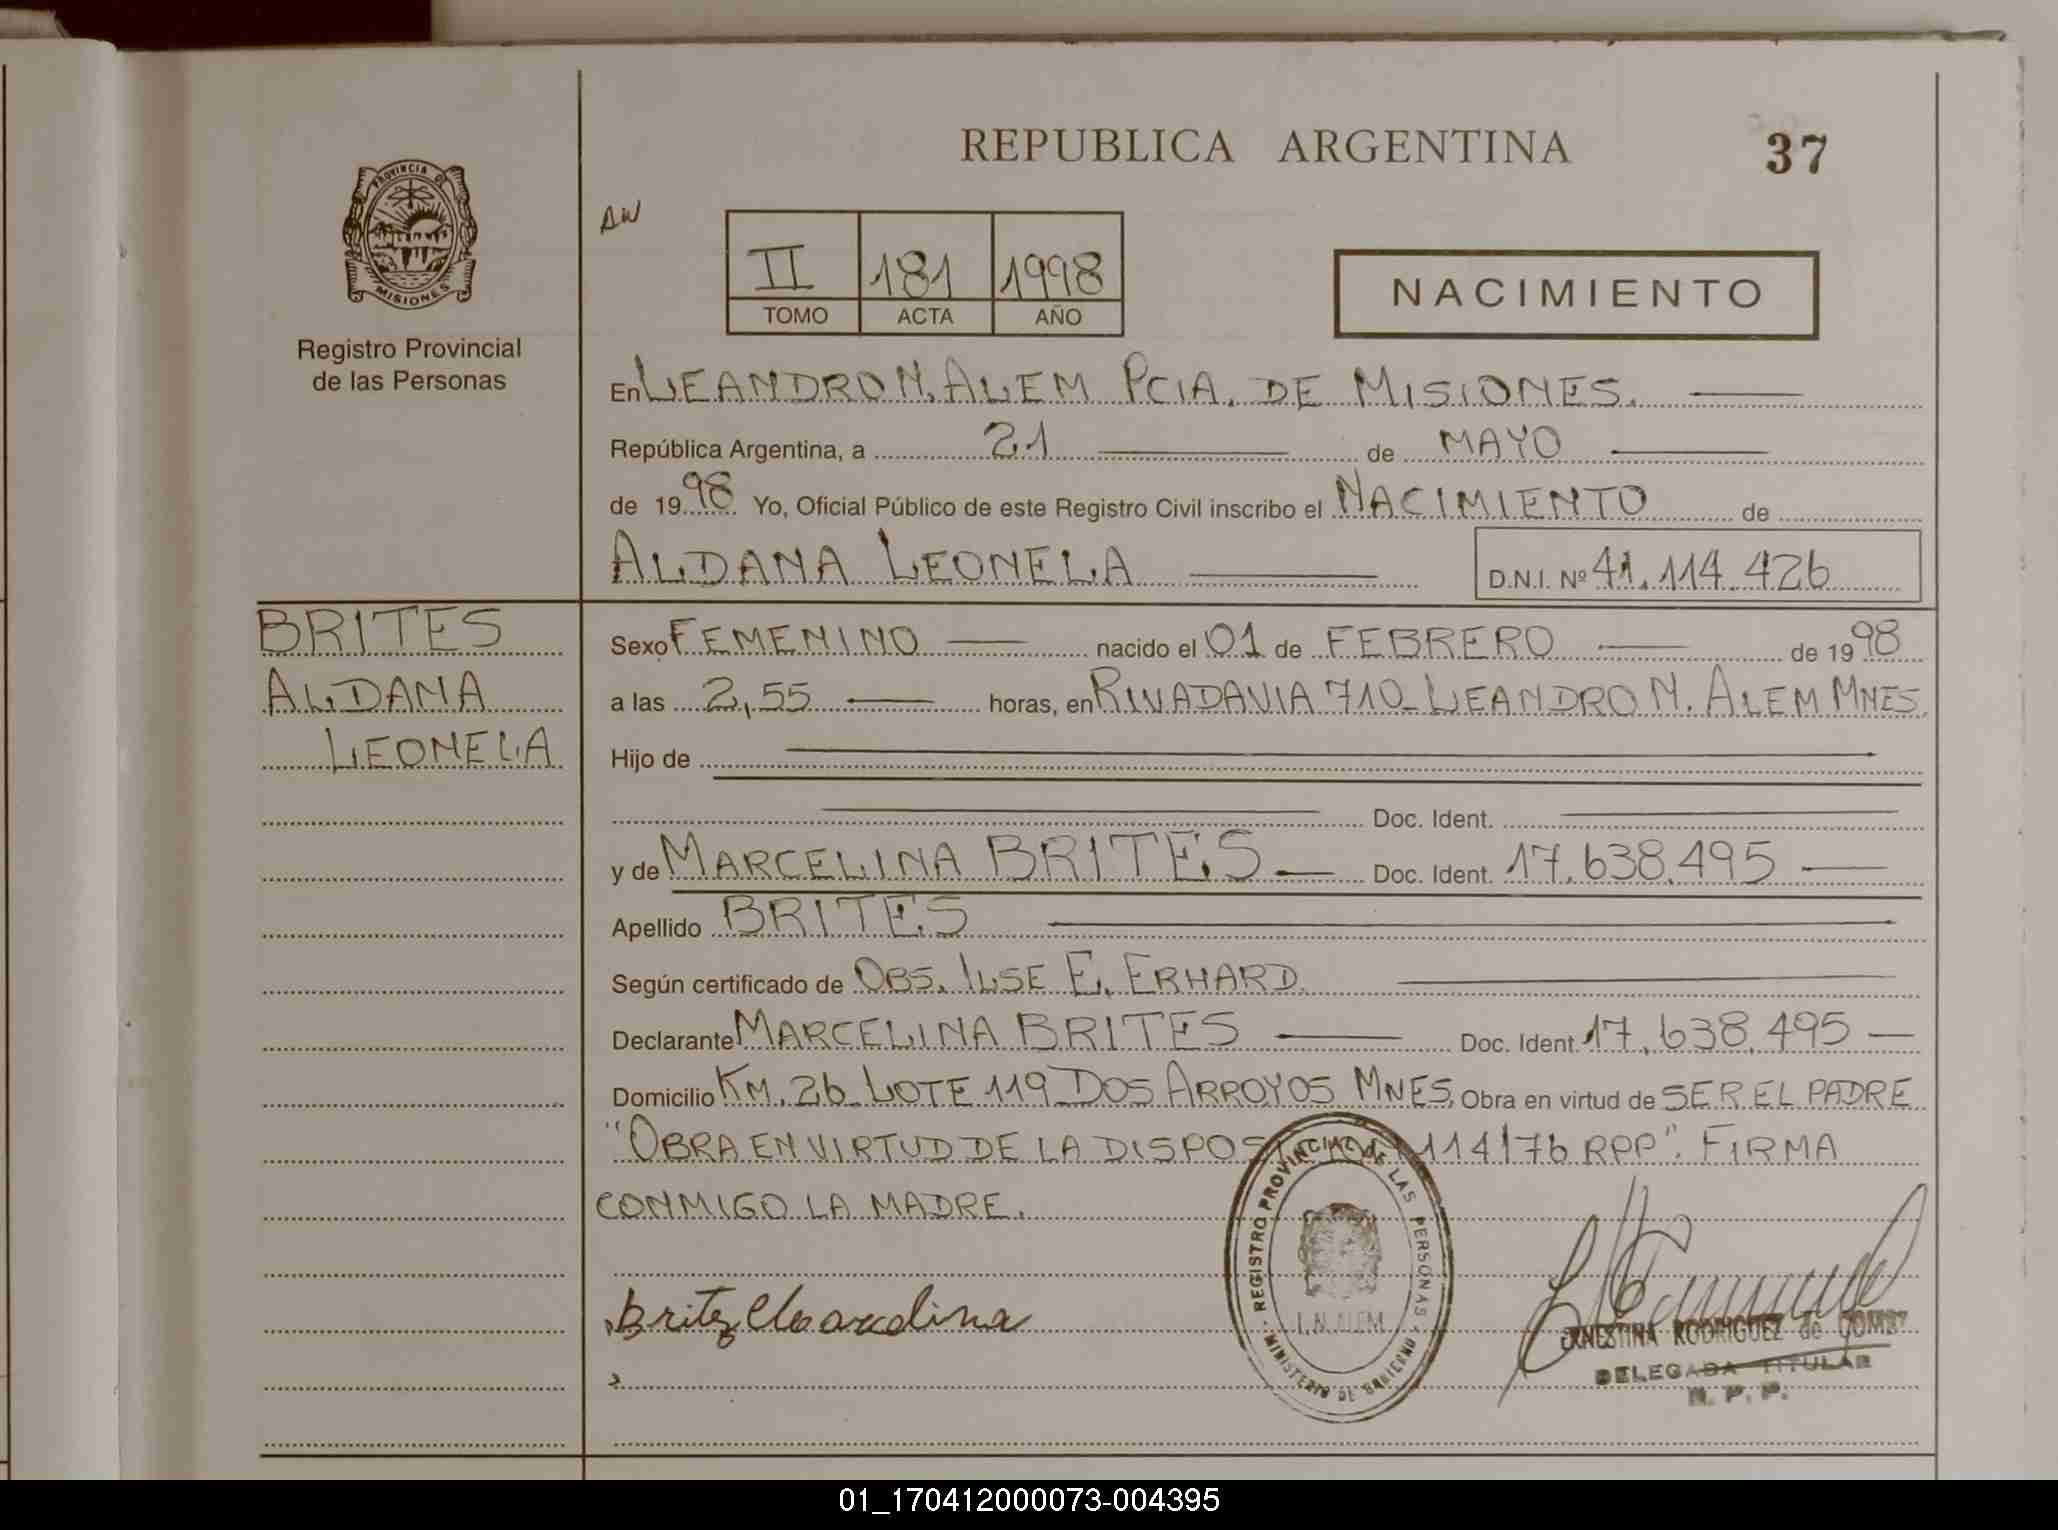 REPUBLICA ARGENTINA
37
PROVINCIA DE
MISIONES
Registro Provincial
de las Personas
AW
II 181 1998
TOMO ACTA AÑO
NACIMIENTO
En LEANDRO N. ALEM PCIA. DE MISIONES.
República Argentina, a 21 de MAYO
de 1998 Yo, Oficial Público de este Registro Civil inscribo el NACIMIENTO de
ALDANA LEONELA D.N.I. Nº 41.114.426
BRITES
ALDANA
LEONELA
Sexo FEMENINO nacido el 01 de FEBRERO de 1998
a las 2,55 horas, en RIVADAVIA 710_LEANDRO N. ALEM MNES.
Hijo de
Doc. Ident.
y de MARCELINA BRITES Doc. Ident. 17.638.495
Apellido BRITES
Según certificado de OBS. ILSE E. ERHARD.
Declarante MARCELINA BRITES Doc. Ident. 17.638.495
Domicilio KM. 26_LOTE 119_DOS ARROYOS MNES. Obra en virtud de SER EL PADRE
"OBRA EN VIRTUD DE LA DISPOS 114/76 RPP". FIRMA
CONMIGO LA MADRE.
REGISTRO PROVINCIAL DE LAS PERSONAS
L.N. ALEM
MINISTERIO DE GOBIERNO
ERNESTINA RODRIGUEZ de
DELEGADA TITULAR
R. P. P.
01_170412000073-004395